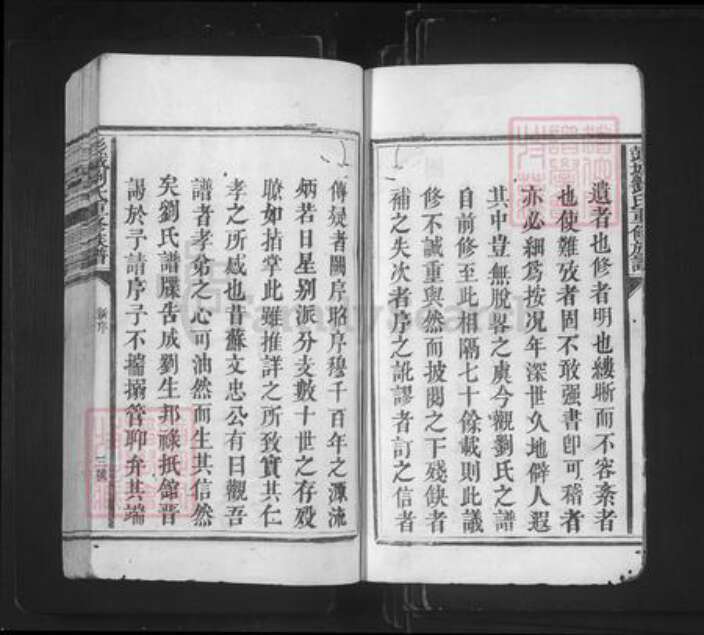 彭城劉氏重修族譜
遺者也修者明也縷晰而不容紊者
也使難攷者固不敢强書卽可稽者
亦必細爲按况年深世久地僻人遐
其中豈無脫畧之虞今觀劉氏之譜
自前修至此相隔七十餘載則此議
修不誠重與然而披閱之下殘缺者
補之失次者序之訛謬者訂之信者
傳疑者闕序昭序穆千百年之源流
炳若日星别派分支數十世之存殁
瞭如指掌此雖推詳之所致實其仁
孝之所感也昔蘇文忠公有曰觀吾
譜者孝弟之心可油然而生其信然
矣劉氏譜牒告成劉生邦祿抵舘晋
謁於予請序予不揣搦管聊弁其端
彭城劉氏重修族譜
新序
三號
FamilySearch